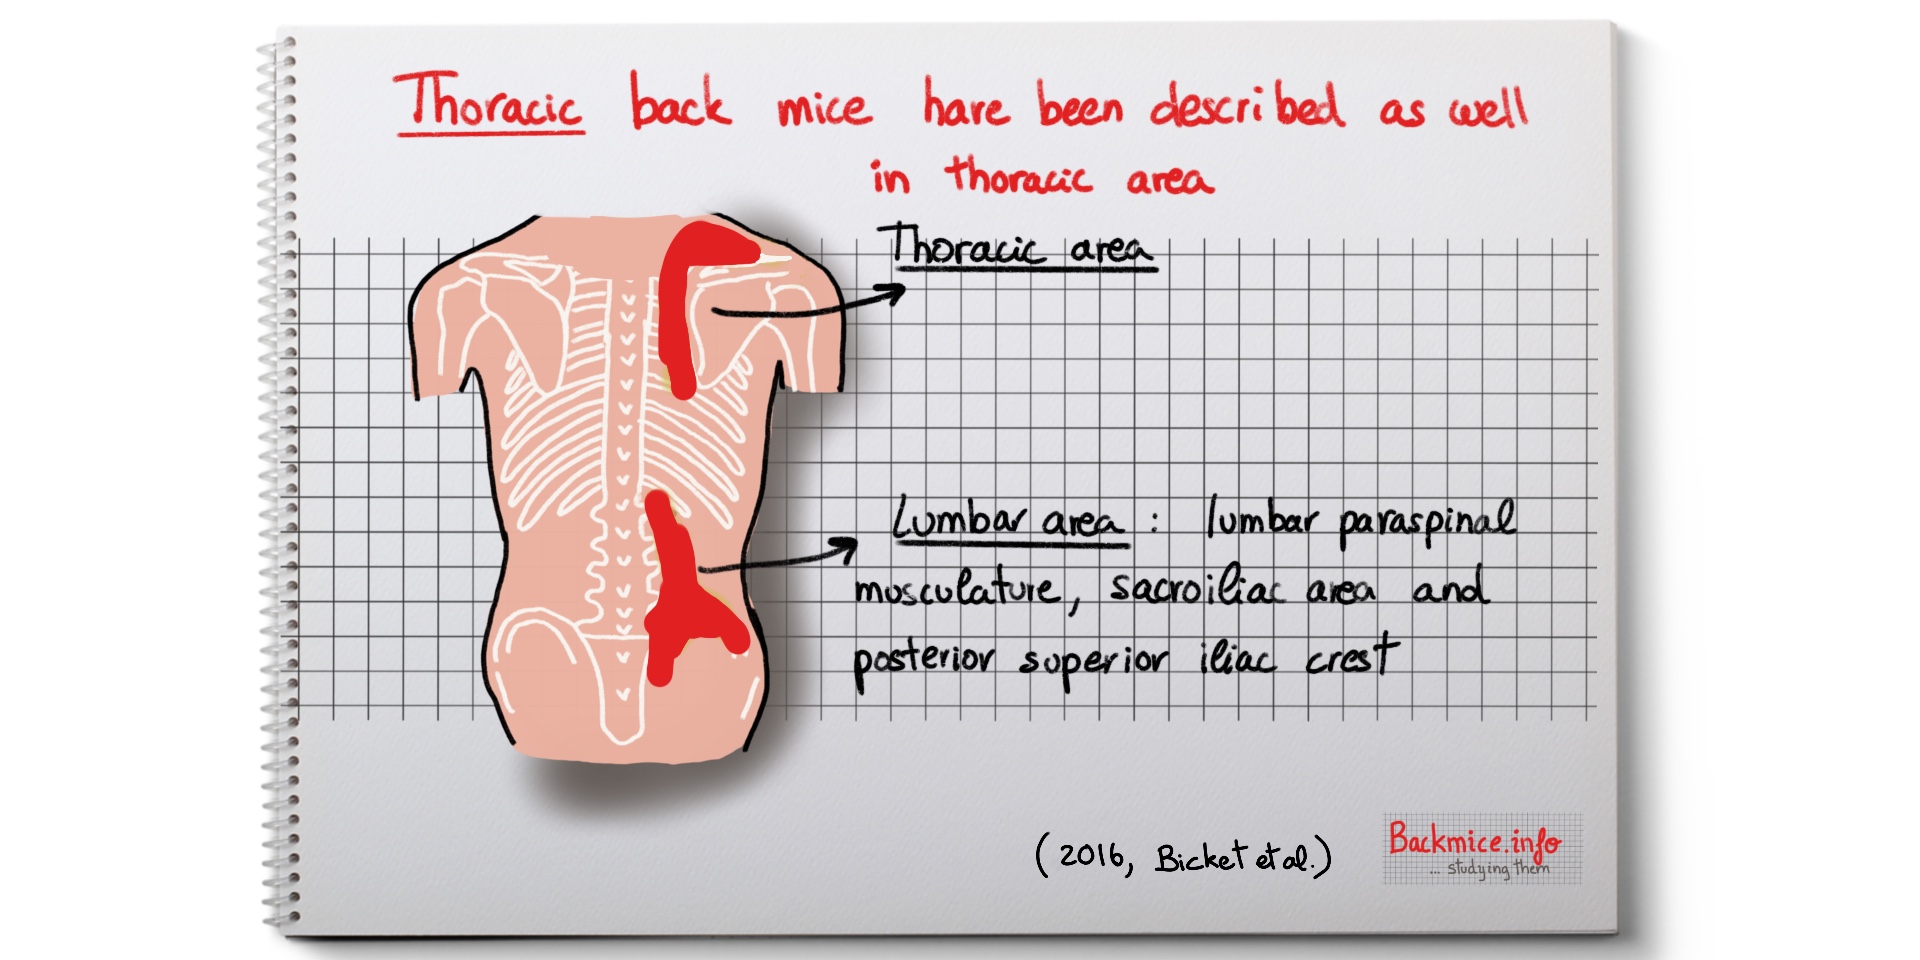 Thoracic back mice have been described as well
in thoracic area
Thoracic area
Lumbar area : lumbar paraspinal
musculature, sacroiliac area and
posterior superior iliac crest
(2016, Bicket et al.)
Backmice.info
... studying them